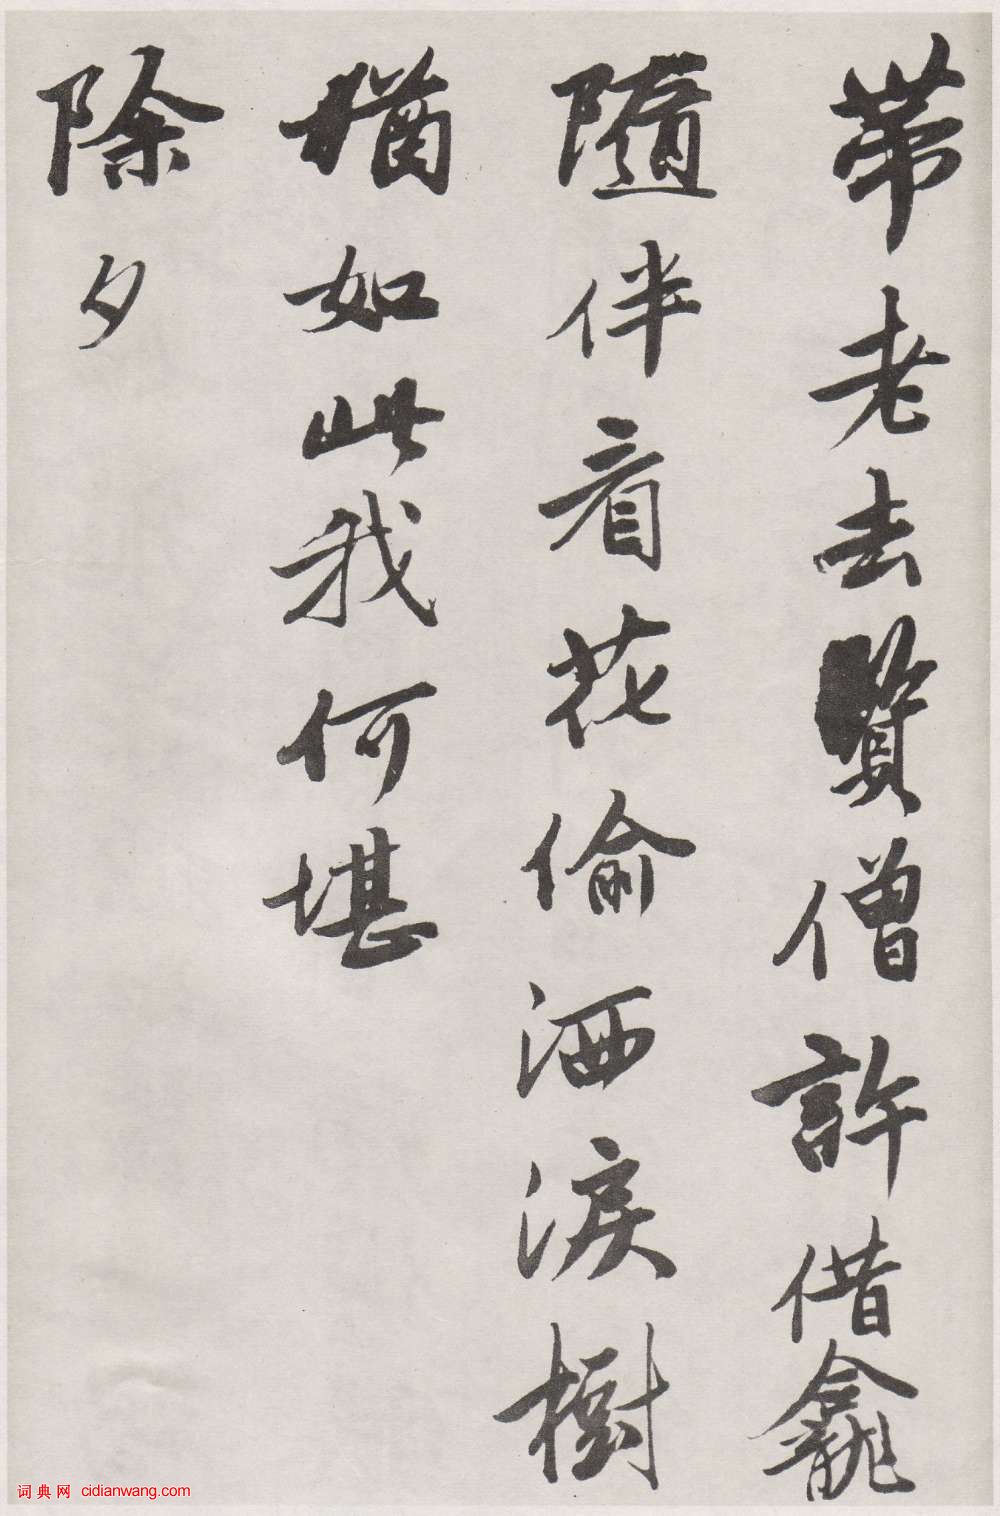 带老去賢僧許借龕
隨伴看花偷洒淚樹
猶如此我何堪
除夕
词典网 cidianwang.com